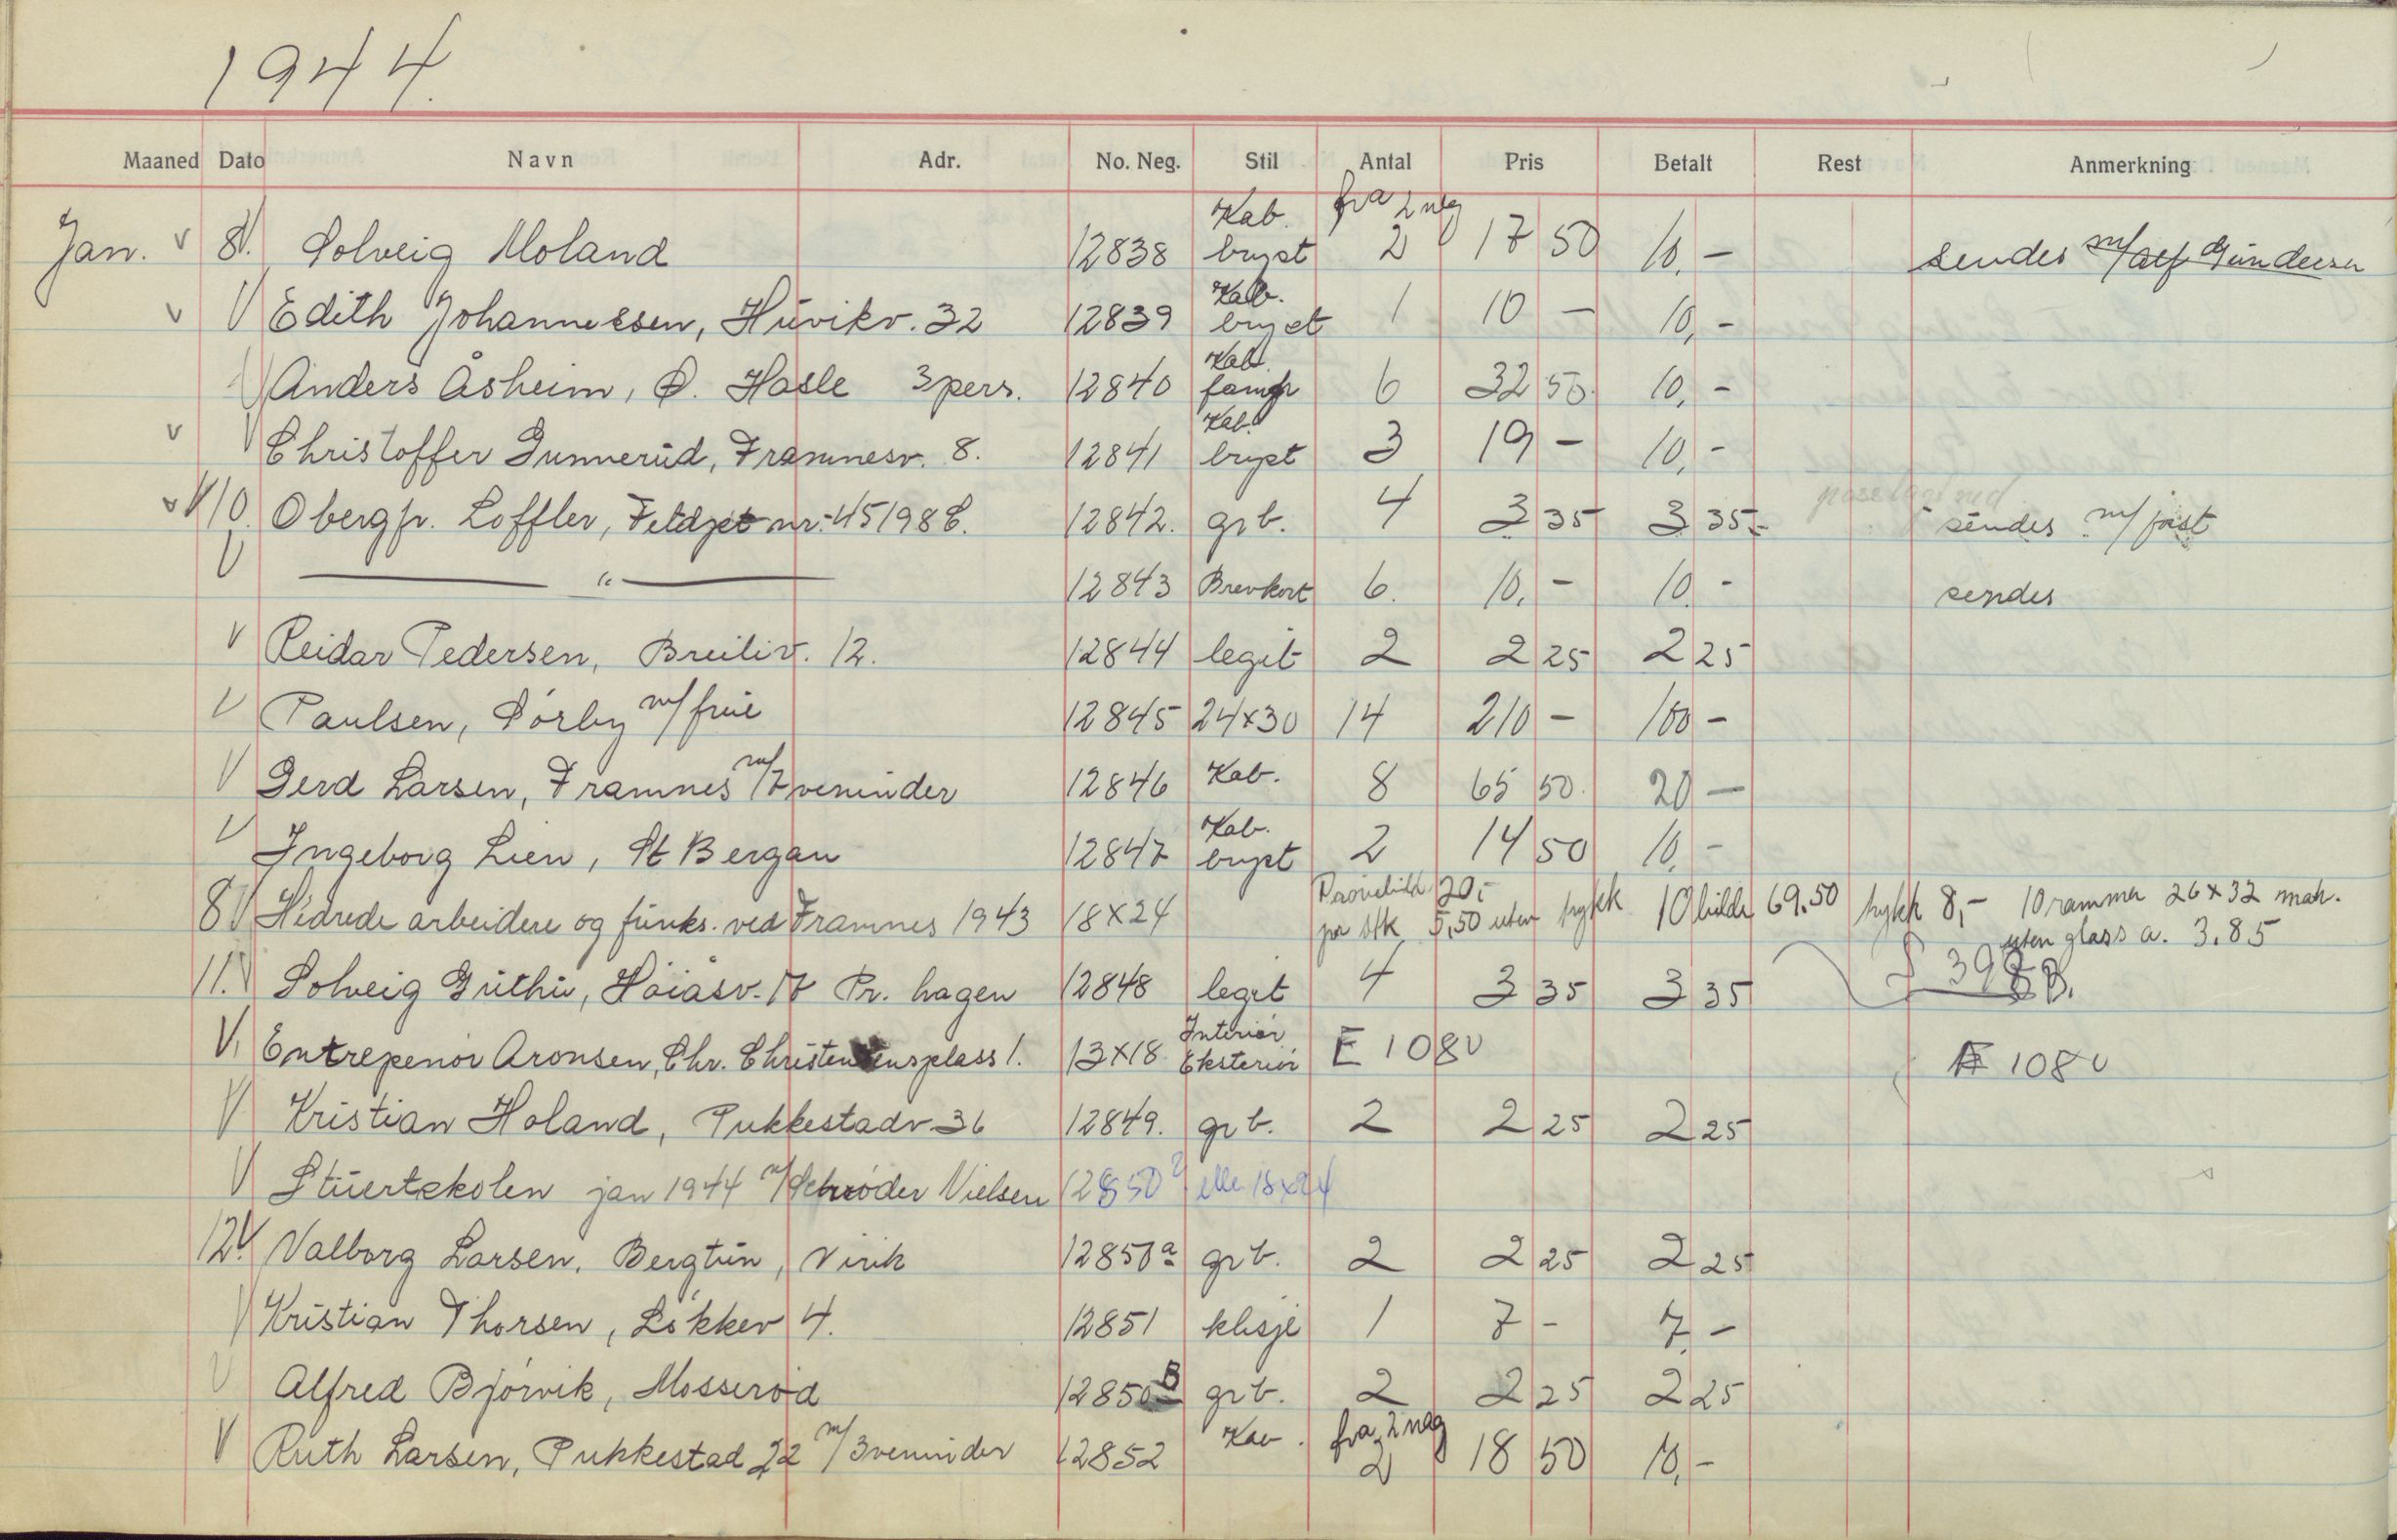 1944.
Maaned Dato Navn Adr. No. Neg. Stil Antal Pris Betalt Rest Anmerkning
Jan. v 8. V Solveig Moland 12838 Kab. bryst fra 2 neg 2 17 50 10,- sendes m/ Alf Gundersen
v V Edith Johannessen, Huvikv. 32 12839 Kab. bryst 1 10 - 10,-
V Anders Åsheim, Ø. Hasle 3 pers. 12840 Kab. 6 32 50. 10,-
v V Christoffer Gunnerud, Framnesv. 8. 12841 Kab. bryst 3 19 - 10,-
v V 10. Obergfr. Loffler, Feldpost nr. 45198 C. 12842. grb. 4 3 35 3 35 - sendes m/
V — " — 12843 Brevkort 6. 10,- 10.- sendes
V Reidar Pedersen, Breiliv. 12. 12844 legit 2 2 25 2 25
V Paulsen, Sörby m/ frue 12845 24x30 14 210 - 100 -
V Gerd Larsen, Framnes m/ 7 veninder 12846 Kab. 8 65 50. 20 -
V Ingeborg Lien, St Bergan 12847 Kab. bryst 2 14 50 10,-
8 V Hedrede arbeidere og funks. ved Framnes 1943 18x24 Prøvebild 20,- pr stk 5,50 uten trykk 10 bilder 69.50 trykk 8,- 10 rammer 26x32 mah.
uten glass a. 3.85
11. V Solveig Guthu, Höiåsv. 17 Pr. hagen 12848 legit 4 3 35 3 35
V. Entrepenör Aronsen, Chr. Christensensplass 1. 13x18 Interiör Eksteriör E 1080 E 1080
V Kristian Holand, Pukkestadv 36 12849. grb. 2 2 25 2 25
V Stuertskolen jan 1944 v/ Schröder Nielsen 12850? elle 18x24
12. V Valborg Larsen, Bergtun, Virik 12850a grb. 2 2 25 2 25
V Kristian Thorsen, Lökkev 4. 12851 klisje 1 7 - 7,-
V Alfred Bjorvik, Mosseröd 12850 B grb. 2 2 25 2 25
V Ruth Larsen, Pukkestad 22 m/ 3 veninder 12852 Kab. fra 2 neg 2 18 50 10,-